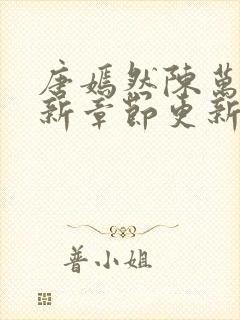 唐嫣然陳萬
新章節更新
普小姐